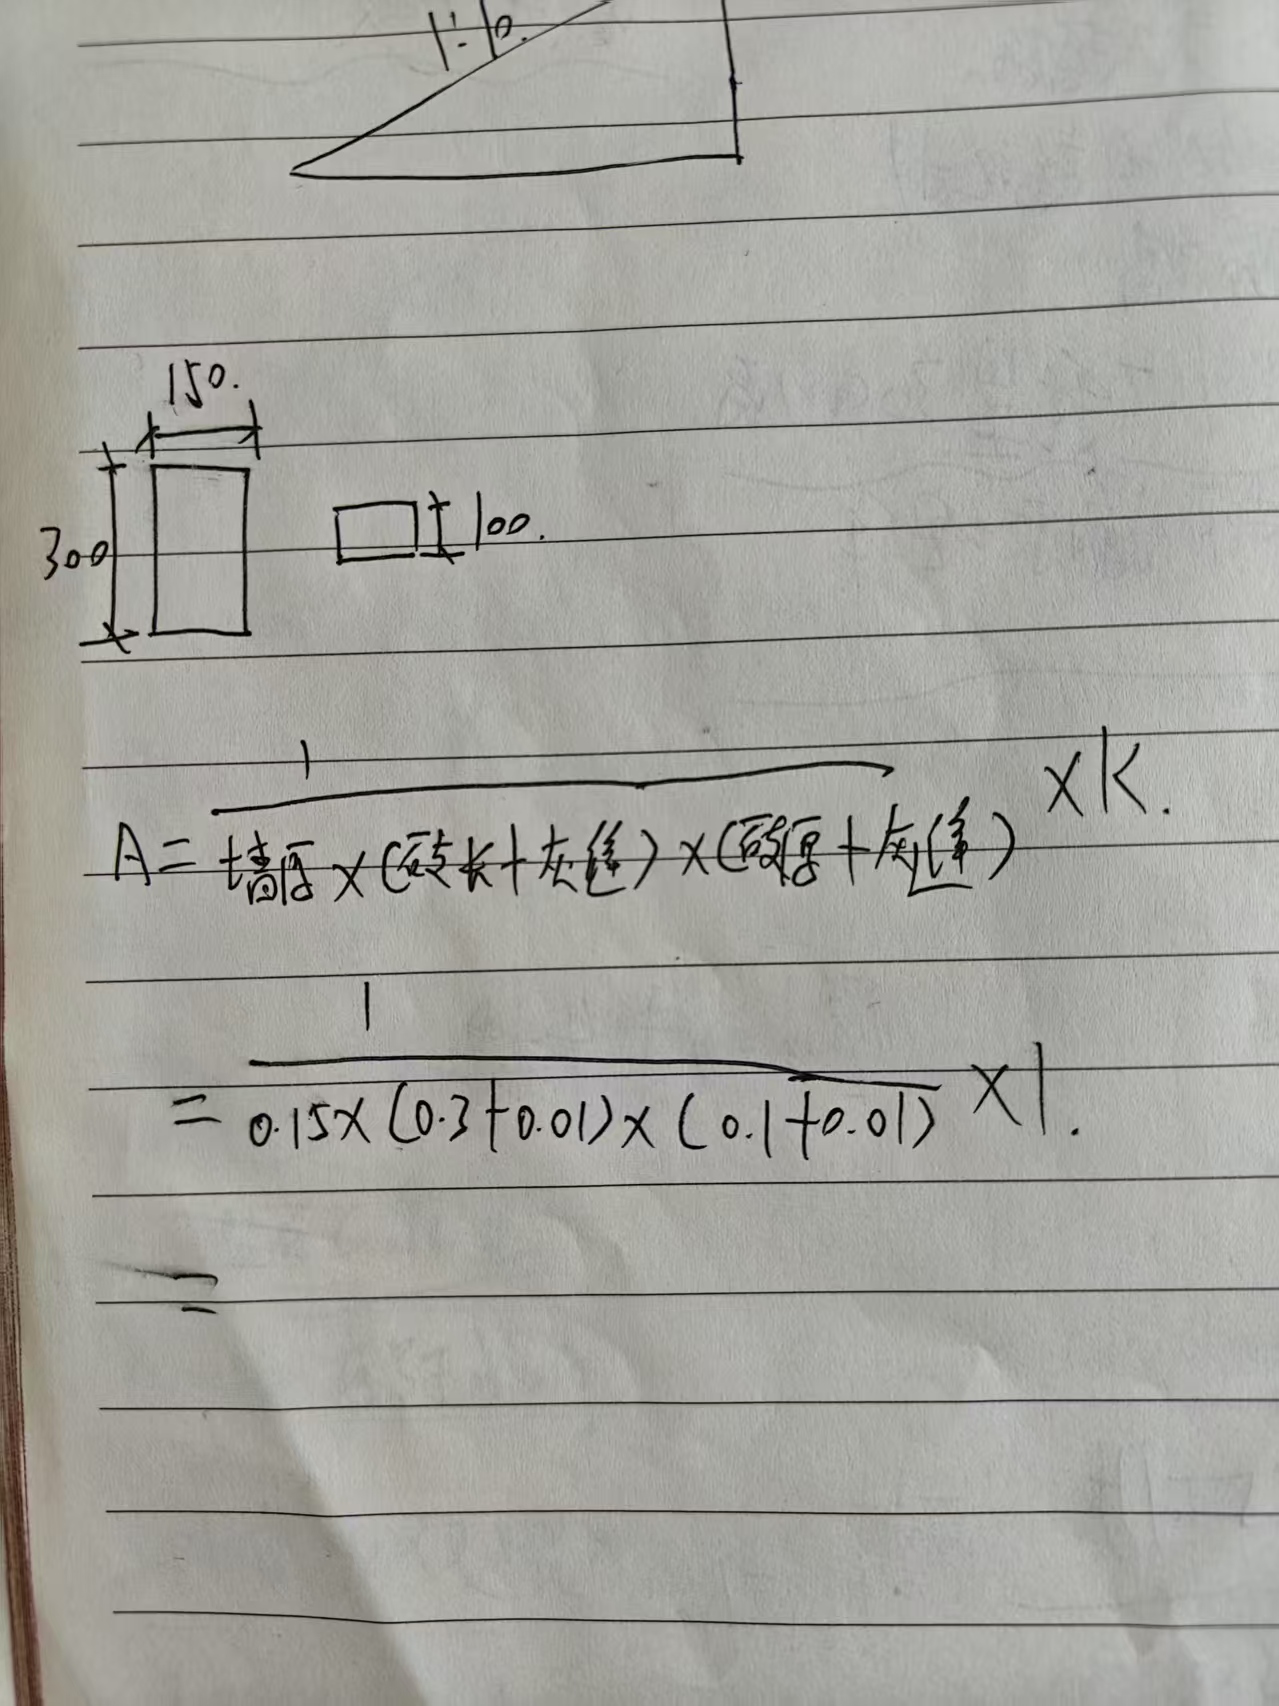 1:10.
150.
300
100.
1
A= 墙厚×(砖长+灰缝)×(砖厚+灰缝) ×K.
1
= 0.15×(0.3+0.01)×(0.1+0.01) ×1.
=